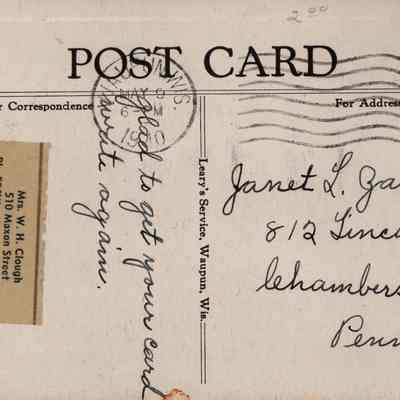 2.00
POST CARD
Correspondence
For Address
WIS.
glad to get your card
write again.
Leary's Service, Waupun, Wis.
Mrs. W. H. Clough
510 Maxon Street
Janet L. Za
812 Linc
Chambers
Penn